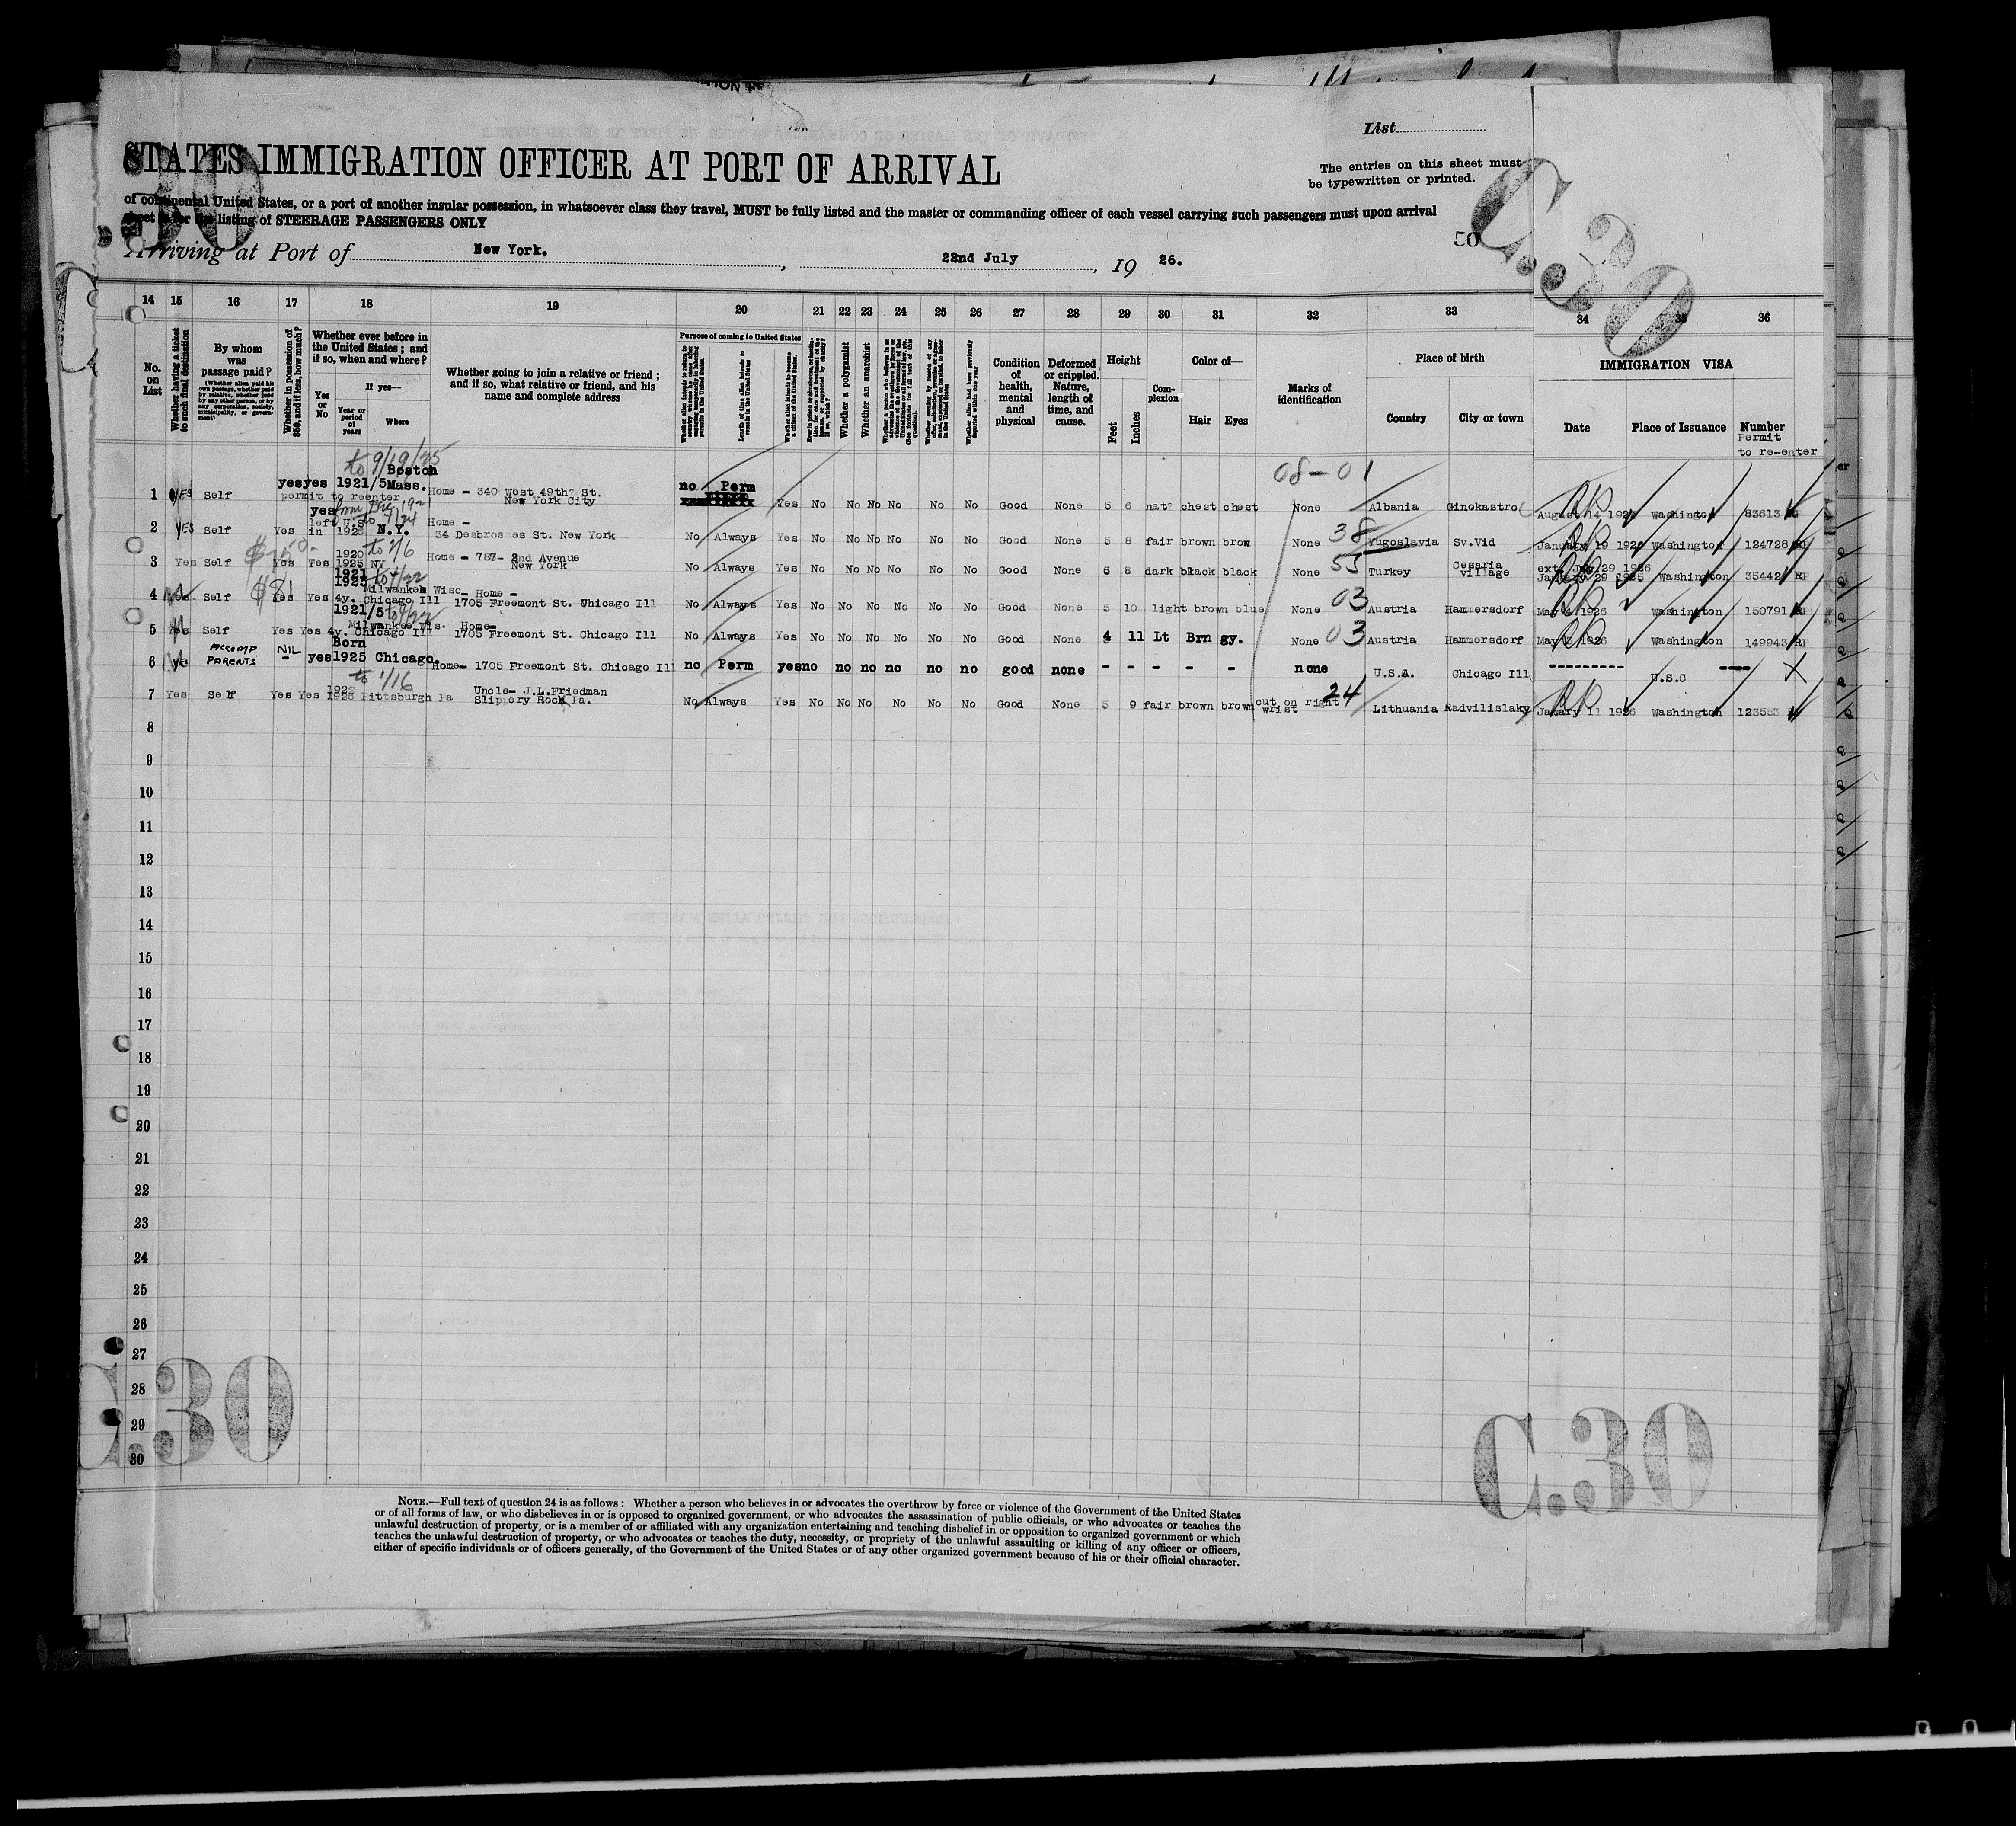 List
STATES IMMIGRATION OFFICER AT PORT OF ARRIVAL
The entries on this sheet must
be typewritten or printed.
of continental United States, or a port of another insular possession, in whatsoever class they travel, MUST be fully listed and the master or commanding officer of each vessel carrying such passengers must upon arrival
sheet is for the listing of STEERAGE PASSENGERS ONLY
C.30
50
Arriving at Port of New York. , 22nd July , 19 26.
14 15 16 17 18 19 20 21 22 23 24 25 26 27 28 29 30 31 32 33 34 35 36
No. on List
Whether having a ticket to such final destination
By whom was passage paid?
(Whether alien paid his own passage, whether paid by relative, whether paid by any other person, or by any corporation, society, municipality, or government)
Whether in possession of $50, and if less, how much?
Whether ever before in the United States; and if so, when and where?
Yes or No
If yes—
Year or period of years
Where
Whether going to join a relative or friend; and if so, what relative or friend, and his name and complete address
Purpose of coming to United States
Length of time alien intends to remain in the United States
Whether alien intends to become a citizen of the United States
Whether a polygamist
Whether an anarchist
Condition of health, mental and physical
Deformed or crippled. Nature, length of time, and cause.
Height
Feet
Inches
Complexion
Color of—
Hair Eyes
Marks of identification
Place of birth
Country City or town
IMMIGRATION VISA
Date Place of Issuance Number
Permit
to re-enter
to 9/19/25
Boston
08-01
1 Yes Self yes yes 1921/5 Mass. permit to reenter Home - 340 West 49th? St. New York City no Perm Yes No No No No No No Good None 5 6 nat? chest chest None Albania Ginokastro August 14 Washington 83613
2 YES Self Yes yes left U.S. in N.Y. Home - 34 Desbrosses St. New York No Always Yes No No No No No No Good None 5 8 fair brown brow None 38 Yugoslavia Sv.Vid January 19 1926 Washington 124728
3 Yes Self Yes Yes 1920 1925 NY to 2/6 Home - 787- 2nd Avenue New York No Always Yes No No No No No No Good None 5 8 dark black black None 55 Turkey Cesaria village January 29 Washington 35442 RP
4 Yes Self $81 Yes Yes 1921 1925 to 4/22 Milwankee Wisc 4y. Chicago Ill - Home - 1705 Freemont St. Chicago Ill No Always Yes No No No No No No Good None 5 10 light brown blue None 03 Austria Hammersdorf 1926 Washington 150791 RP
5 Yes Self Yes Yes 1921/5 Milwankee Wis. 4y. Chicago Ill Home- 1705 Freemont St. Chicago Ill No Always Yes No No No No No No Good None 4 11 Lt Brn gy. None 03 Austria Hammersdorf 1926 Washington 149943 RP
6 yes ACCOMP PARENTS NIL - yes Born 1925 Chicago Home- 1705 Freemont St. Chicago Ill no Perm yes no no no no no no good none - - - - - none U.S.A. Chicago Ill --------- U.S.C --- X
7 Yes Self Yes Yes to 1/16 Pittsburgh Pa Uncle- J.L.Friedman Slippery Rock Pa. No Always Yes No No No No No No Good None 5 9 fair brown brown cut on right wrist 24 Lithuania Radvilislaky Janary 11 1926 Washington 123553
8
9
10
11
12
13
14
15
16
17
18
19
20
21
22
23
24
25
26
27
28
29
30
C.30
C.30
NOTE.—Full text of question 24 is as follows: Whether a person who believes in or advocates the overthrow by force or violence of the Government of the United States
or of all forms of law, or who disbelieves in or is opposed to organized government, or who advocates the assassination of public officials, or who advocates or teaches the
unlawful destruction of property, or is a member of or affiliated with any organization entertaining and teaching disbelief in or opposition to organized government or which
teaches the unlawful destruction of property, or who advocates or teaches the duty, necessity, or propriety of the unlawful assaulting or killing of any officer or officers,
either of specific individuals or of officers generally, of the Government of the United States or of any other organized government because of his or their official character.